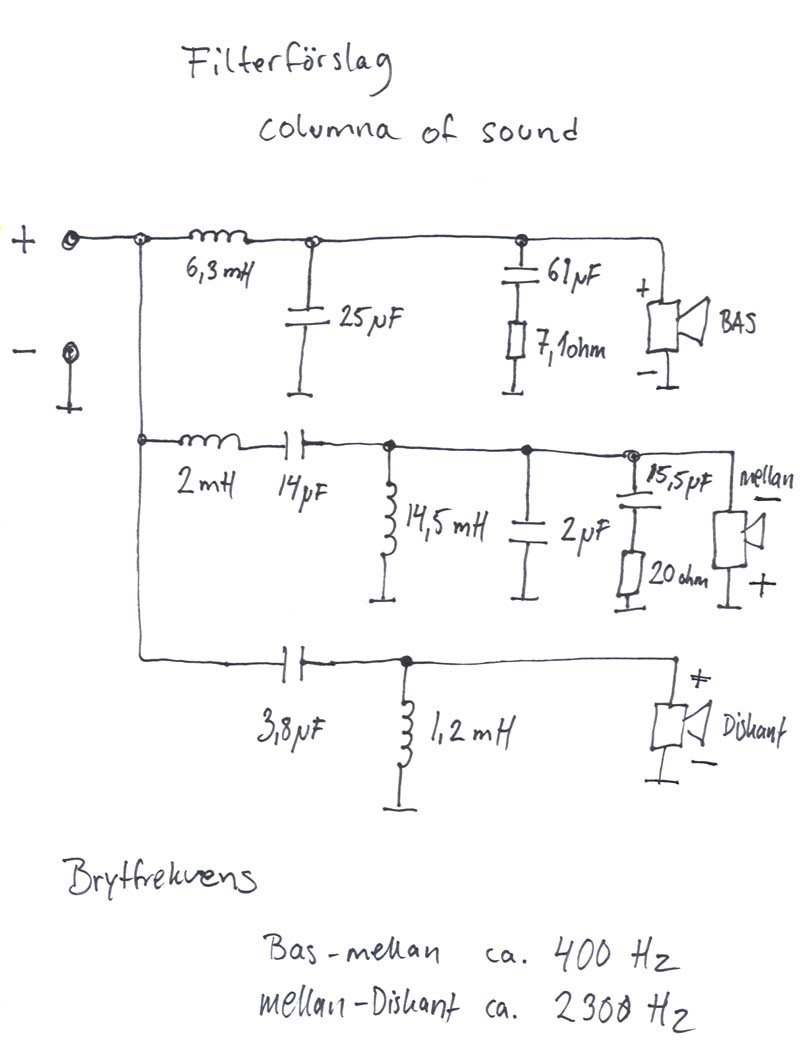 Filterförslag
columna of sound
+
6,3 mH
25 µF
61 µF
7,1 ohm
+
BAS
-
-
2 mH
14 µF
14,5 mH
2 µF
15,5 µF
20 ohm
mellan
-
+
3,8 µF
1,2 mH
+
Diskant
-
Brytfrekvens
Bas-mellan ca. 400 Hz
mellan-Diskant ca. 2300 Hz